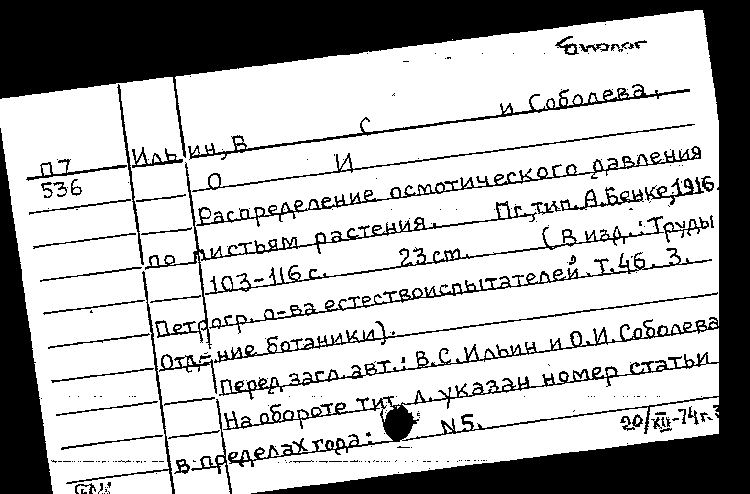 Биолог
П7
536
Ильин, В С и Соболева,
О И
Распределение осмотического давления
по листьям растения. Пг., тип. А. Бенке, 1916.
103-116 с. 23 ст. (В изд.: Труды
Петрогр. о-ва естествоиспытателей. Т. 46. 3.
Отд-ние ботаники).
Перед загл. авт.: В.С. Ильин и О.И. Соболева
На обороте тит. л. указан номер статьи
в пределах года: N 5.
20/XII-74 г.